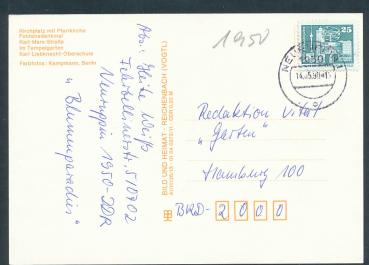 Kirchplatz mit Pfarrkirche
Fontanedenkmal
Karl-Marx-Straße
Im Tempelgarten
Karl-Liebknecht-Oberschule
Farbfotos: Kampmann, Berlin
1950
25
Abs.: Weiß
Neuruppin 1950-DDR
"Blumenparadies"
BILD UND HEIMAT · REICHENBACH (VOGTL)
Redaktion Vital
"Garten"
Hamburg 100
BRD- 2000